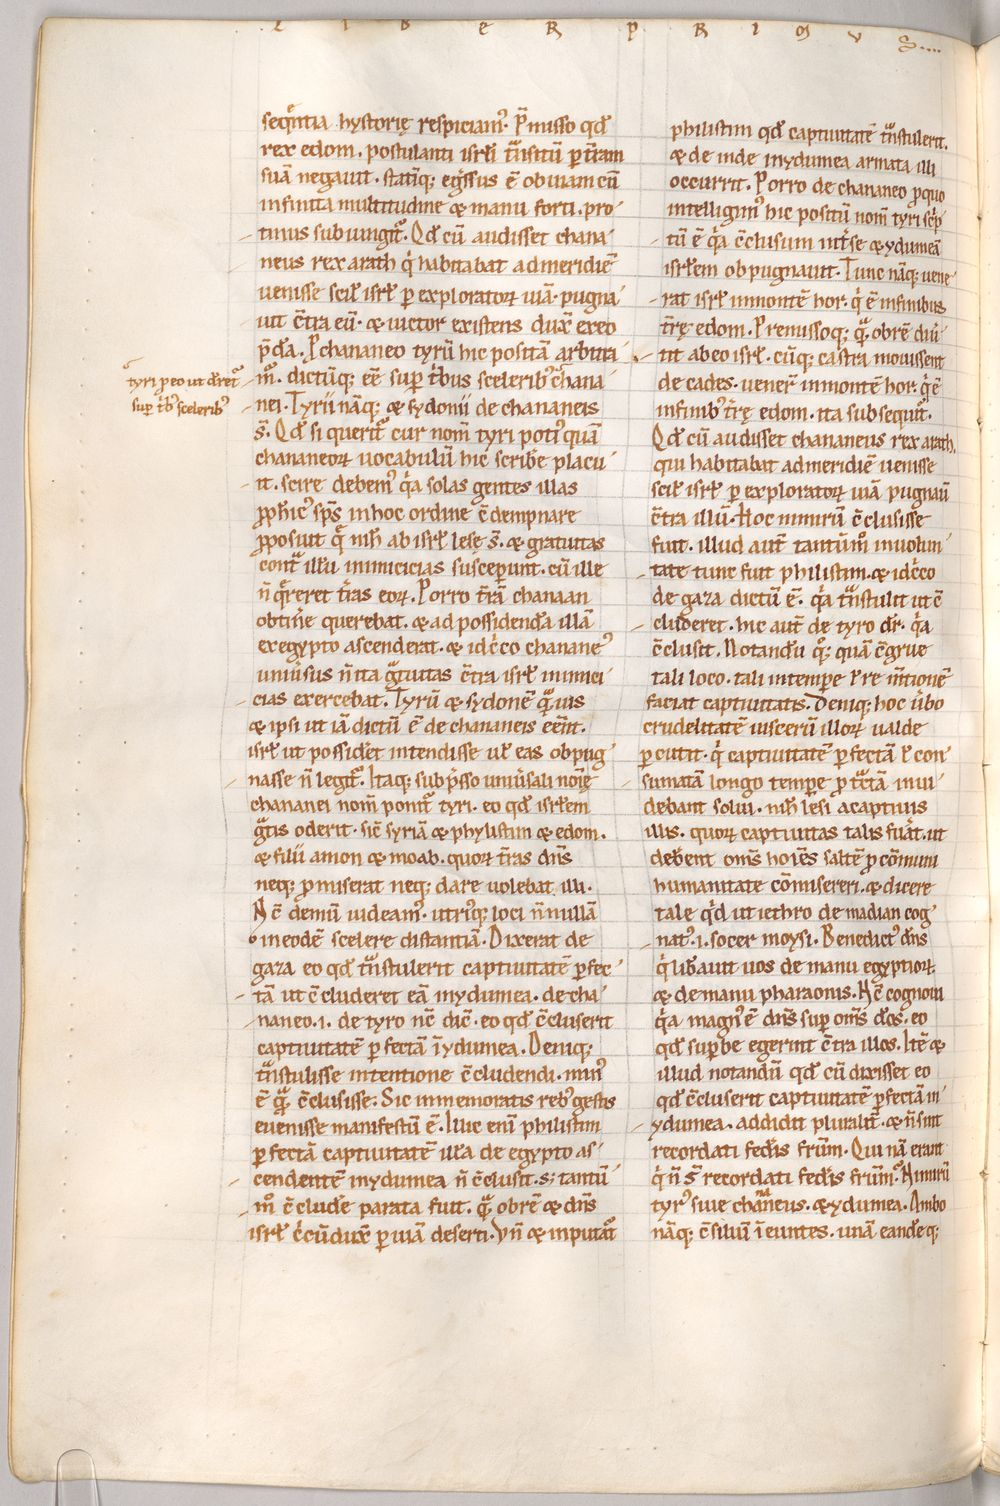 L I B E R P R I M V S....
seqntia hystorię respiciam᷒. P̄misso qđ
rex edom. postulanti isrł tnsitū p tram
suā negauit. statiq; egssus ē obuiam cū
infinita multitudine & manu forti. pro-
tinus subiungit᷒. Qđ cū audisset chana-
neus rex arath q̇ habitabat ad meridiē
uenisse scił isrł p exploratoꝝ uiā. pugna-
uit c̄tra eū. & uictor existens duxit ex eo
p̄dā. P chananeo tyrū hic positā arbitra-
m᷒. dictūq; eē sup trib᷒ scelerib᷒ chana-
nei. Tyrii nāq; & sydonii de chananeis
s̄. Qđ si querit᷒ cur nom̄ tyri poti᷒ quā
chananeoꝝ uocabulū hic scribe placu-
it. scire debem᷒ q̇a solas gentes illas
p̱phic᷒ sp̄s in hoc ordine c̄dempnare
p̱posuit q̄ nich ab isrł lese s̄. & gratuitas
cont̄ illū inimicicias susceperunt. cū ille
n̄ q̄reret tras eoꝝ. Porro trā chanaan
obtine querebat. & ad possidendā illā
ex egypto ascenderat. & idc̄co chanane᷒
uniūsus n̄ ita gtuitas c̄tra isrł inimici-
cias exercebat. Tyrū & sydonē q̄uis
& ipsi ut iā dictū ē de chananeis eent.
isrł ut possidet intendisse uł eas obpug-
nasse n̄ legit᷒. Itaq; sub p̄sso uniūsali noīe
chananei nom̄ ponit᷒ tyri. eo qđ isrłem
gtis oderit. sic̄ syriā & phylistim & edom.
& filii amon & moab. quoꝝ tras dn̄s
neq; pmiserat neq; dare uolebat illi.
Nc̄ demū uideam᷒. utriq; loci n̄nullā
in eodē scelere distantiā. Dixerat de
gaza eo qđ tnstulerit captiuitatē pfec-
tā ut c̄cluderet eā in ydumea. de cha-
naneo .i. de tyro nc̄ dic̄. eo qđ c̄cluserit
captiuitatē pfectā ī ydumea. Deniq;
tnstulisse intentione c̄cludendi. min᷒
ē q̄ c̄clusisse. Sic in memoratis reb᷒ gestis
euenisse manifestū ē. Illic enī philistim
pfectā captiuitatē illa de egypto as-
cendentē in ydumea n̄ c̄clusit. s; tantū-
m̊ c̄clude parata fuit. q̄ obre & dn̄s
isrł c̄cūdux̄ p uiā deserti. Vn̄ & inputat᷒
tyri p eo ut dr̄et᷒
sup trib᷒ scelerib᷒
philistim qđ captiuitatē tnstulerit.
& de inde in ydumea armata illi
occurrit. Porro de chananeo p quo
intelligim᷒ hic positū nom̄ tyri sc̄p-
tū ē q̇a c̄clusum uit se & ydumeā
isrłem obpugnauit. Tunc nāq; uene-
rat isrł in montē hor. q̇ ē in finibus
trę edom. Premissoq; q̄ obre diū-
tit ab eo isrł. cūq; castra mouissent
de cades. uener in montē hor. q̇ ē
in finib᷒ trę edom. ita subsequit᷒.
Qđ cū audisset chananeus rex arath.
qui habitabat ad meridiē uenisse
scił isrł p exploratoꝝ uiā pugnau
c̄tra illū. Hoc nimirū c̄clusisse
fuit. illud aut̄ tantūm̊ in uolun-
tate tunc fuit philistim. & idc̄co
de gaza dictū ē. q̇a tnstulit ut c̄-
cluderet. hic aut̄ de tyro dr̄. q̇a
c̄clusit. Notandū q̊; quā c̄grue
tali loco. tali in tempe p̄re m̄tionē
faciat captiuitatis. Deniq; hoc ūbo
crudelitatē uiscerū illoꝝ ualde
pcutit. q̇ captiuitatē pfectā & con-
sumatā longo tempe p totā inui-
debant solui. nich lesi a captiuis
illis. quoꝝ captiuitas talis fuāt. ut
debent oms̄ hoīes saltē p cōmuni
humanitate cōmisereri. & dicere
tale q̇d ut iethro de madian cog-
nat᷒ .i. socer moysi. Benedict᷒ dn̄s
q̇ libauit uos de manu egyptioꝝ.
& de manu pharaonis. Nc̄ cognoui
q̇a magn᷒ ē dn̄s sup oms̄ dōs. eo
qđ supbe egerint c̄tra illos. Itē &
illud notandū qđ cū dixisset eo
qđ c̄cluserit captiuitatē pfectā in
ydumea. addidit pluralit̄. & n̄ sunt
recordati fedis frūm. Qui nā erant
q̇ n̄ s̄ recordati fedis frūm. Nimirū
tyr᷒ siue chananeus. & ydumea. Ambo
nāq; c̄siliū ineuntes. unā eandēq;